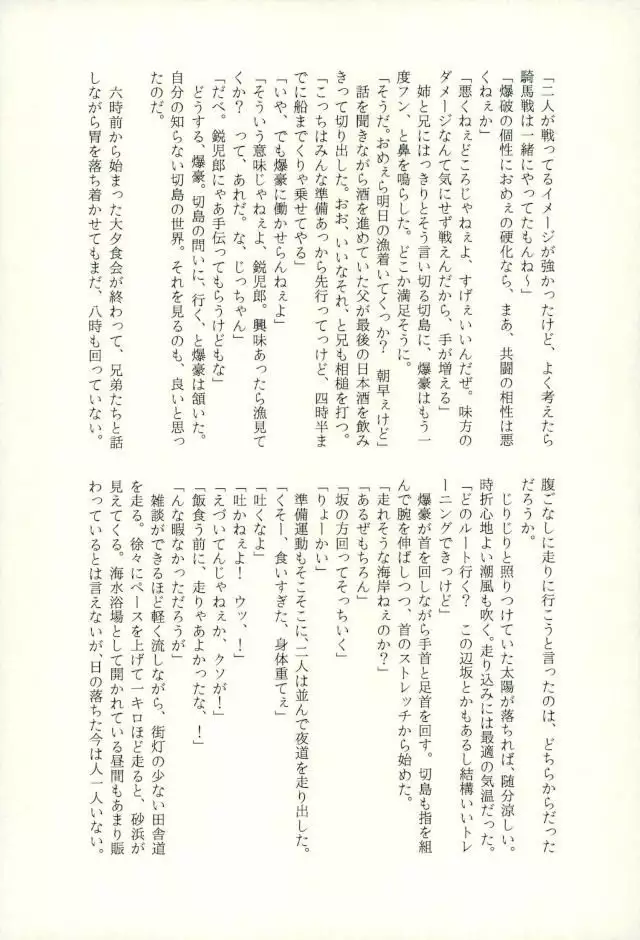 「二人が戦ってるイメージが強かったけど、よく考えたら
騎馬戦は一緒にやってたもんね〜」
「爆破の個性におめぇの硬化なら、まあ、共闘の相性は悪
くねぇか」
「悪くねぇどころじゃねぇよ、すげぇいいんだぜ。味方の
ダメージなんて気にせず戦えんだから、手が増える」
　姉と兄にはっきりとそう言い切る切島に、爆豪はもう一
度フン、と鼻を鳴らした。どこか満足そうに。
「そうだ。おめぇら明日の漁着いてくっか？　朝早ぇけど」
　話を聞きながら酒を進めていた父が最後の日本酒を飲み
きって切り出した。おお、いいなそれ、と兄も相槌を打つ。
「こっちはみんな準備あっから先行ってっけど、四時半ま
でに船までくりゃ乗せてやる」
「いや、でも爆豪に働かせらんねぇよ」
「そういう意味じゃねぇよ、鋭児郎。興味あったら漁見て
くか？　って、あれだ。な、じっちゃん」
「だべ。鋭児郎にゃあ手伝ってもらうけどもな」
　どうする、爆豪。切島の問いに、行く、と爆豪は頷いた。
自分の知らない切島の世界。それを見るのも、良いと思っ
たのだ。
　六時前から始まった大夕食会が終わって、兄弟たちと話
しながら胃を落ち着かせてもまだ、八時も回っていない。
腹ごなしに走りに行こうと言ったのは、どちらからだった
だろうか。
　じりじりと照りつけていた太陽が落ちれば、随分涼しい。
時折心地よい潮風も吹く。走り込みには最適の気温だった。
「どのルート行く？　この辺坂とかもあるし結構いいトレ
ーニングできっけど」
　爆豪が首を回しながら手首と足首を回す。切島も指を組
んで腕を伸ばしつつ、首のストレッチから始めた。
「走れそうな海岸ねぇのか？」
「あるぜもちろん」
「坂の方回ってそっちいく」
「りょーかい」
　準備運動もそこそこに、二人は並んで夜道を走り出した。
「くそー、食いすぎた、身体重てぇ」
「吐くなよ」
「吐かねぇよ！　ウッ、！」
「えづいてんじゃねぇか、クソが！」
「飯食う前に、走りゃあよかったな、！」
「んな暇なかっただろうが」
　雑談ができるほど軽く流しながら、街灯の少ない田舎道
を走る。徐々にペースを上げて一キロほど走ると、砂浜が
見えてくる。海水浴場として開かれている昼間もあまり賑
わっているとは言えないが、日の落ちた今は人一人いない。